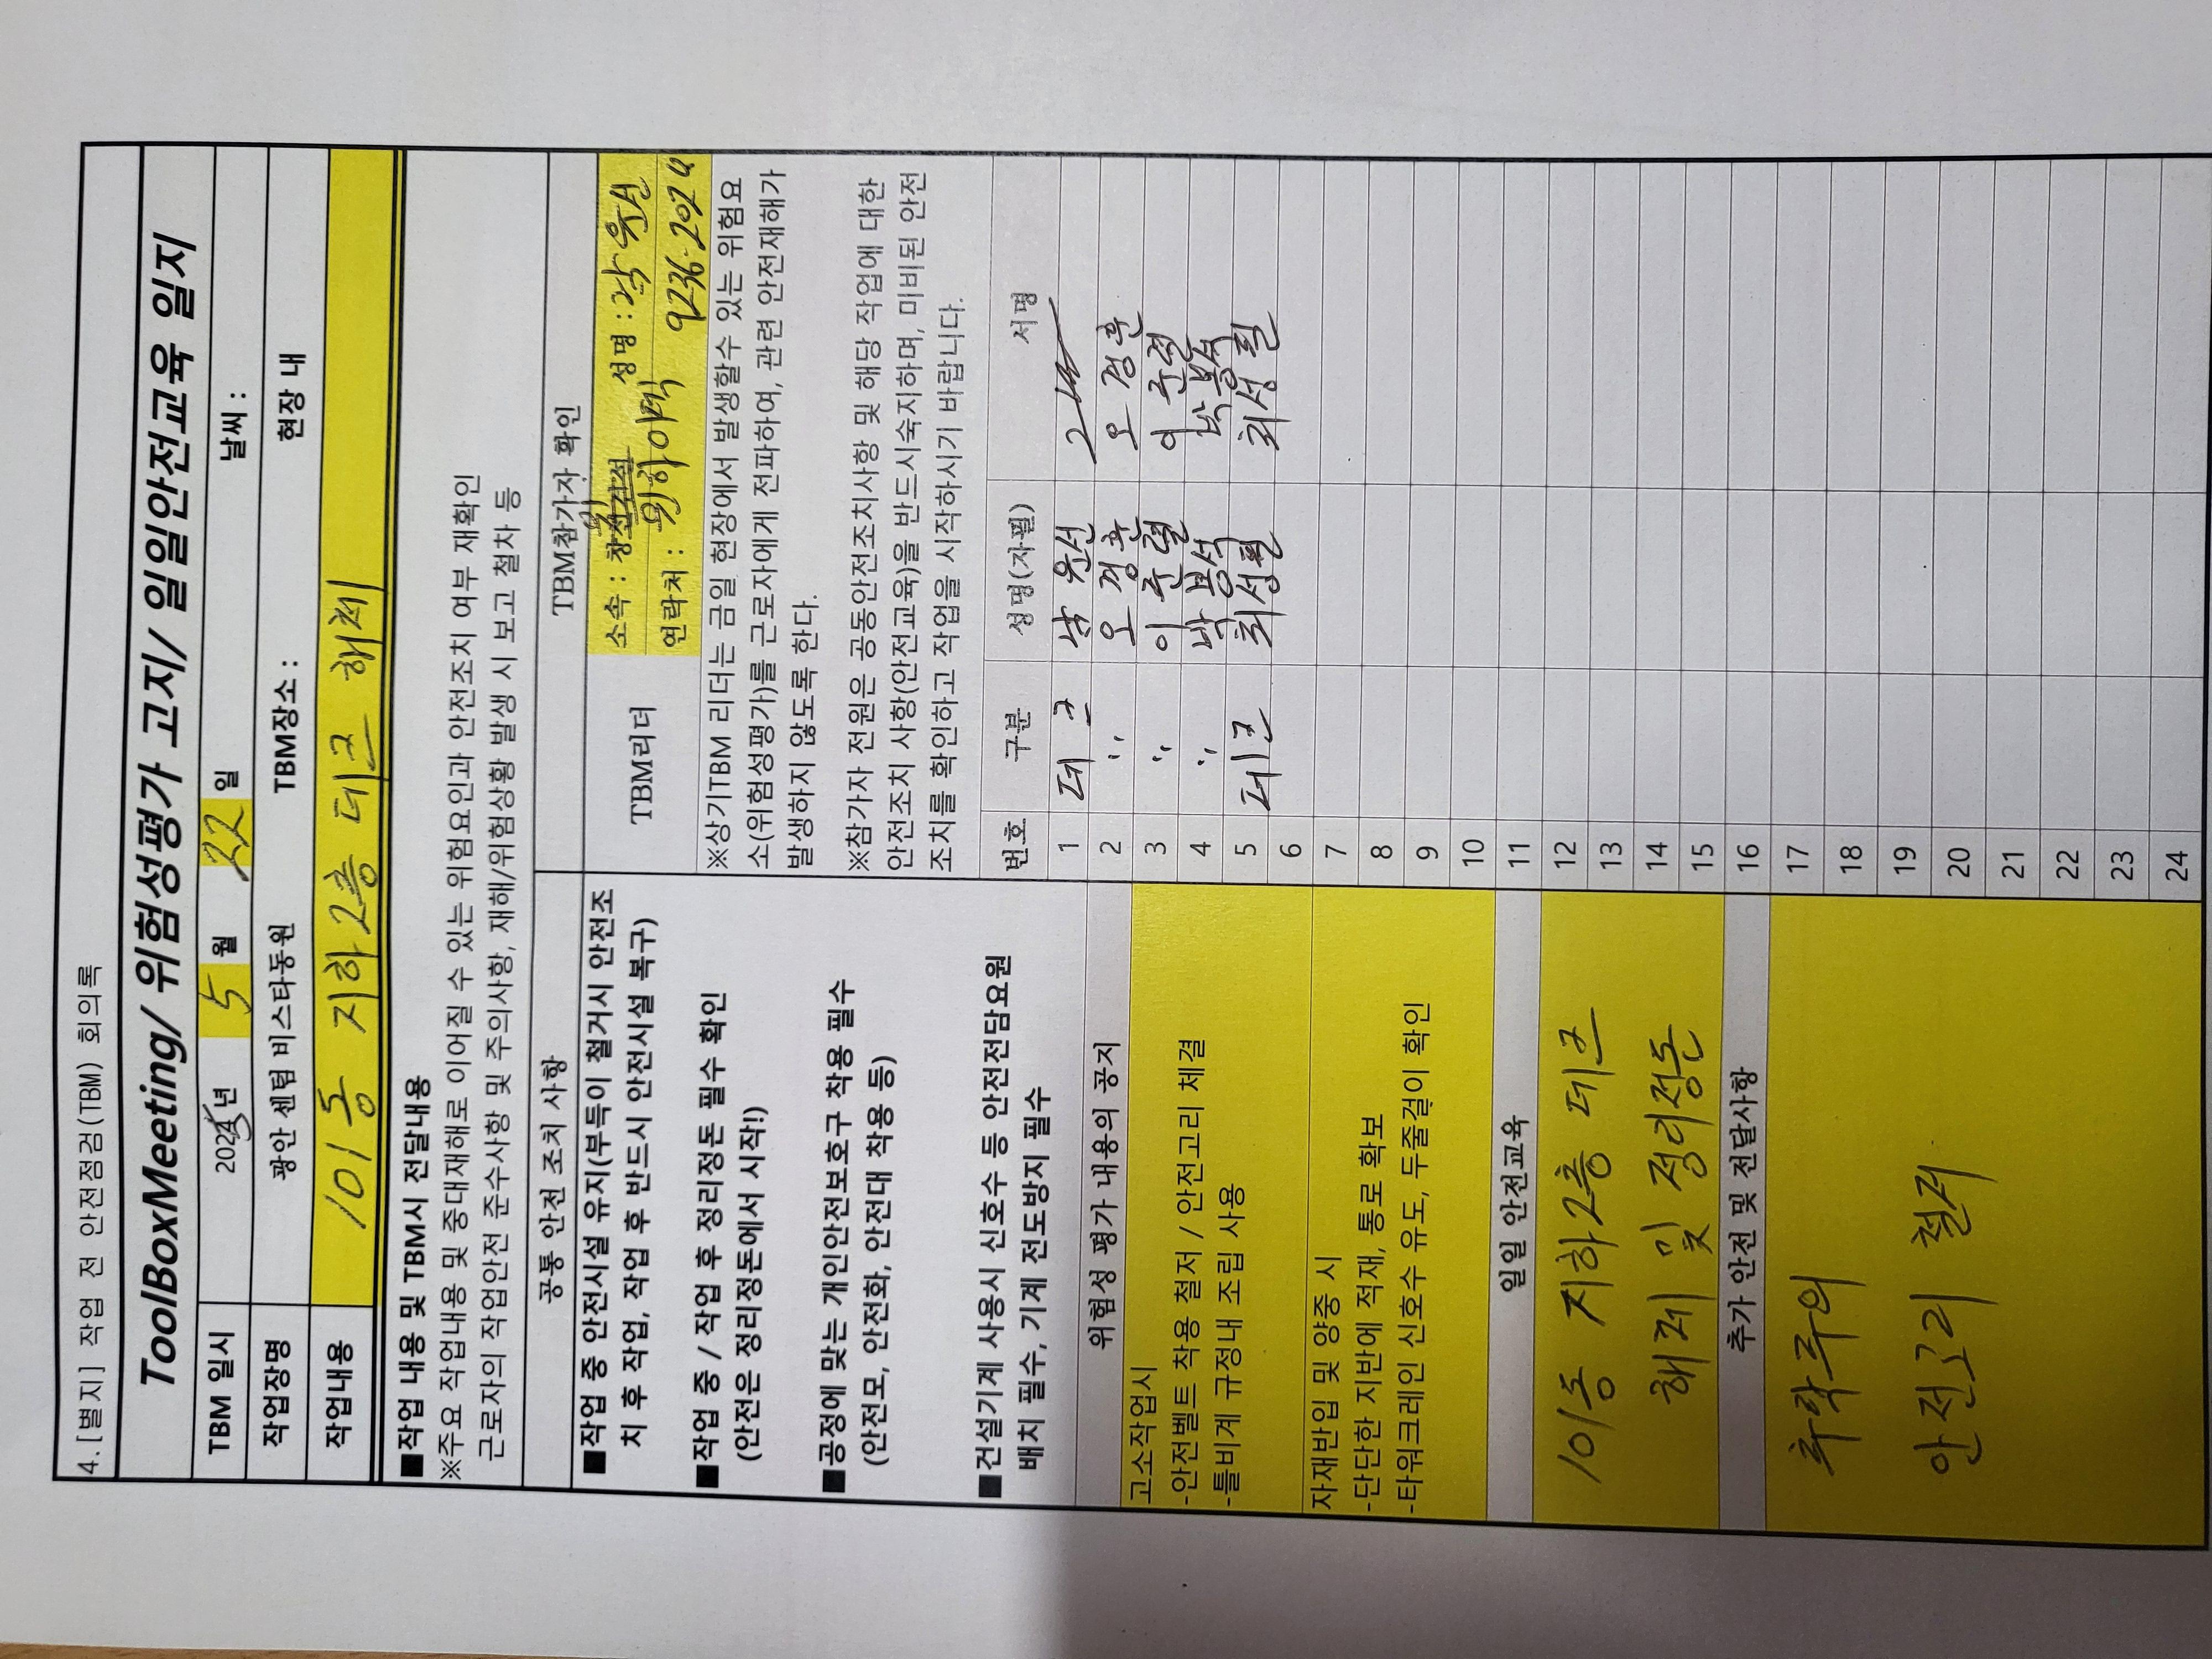 4.[별지] 작업 전 안전점검(TBM) 회의록
ToolBoxMeeting/ 위험성평가 고지/ 일일안전교육 일지
TBM 일시 2025년 5월 22일 날씨 :
작업장명 광안 센텀 비스타동원 TBM장소 : 현장 내
작업내용 101동 지하2층 데크 해체
■작업 내용 및 TBM시 전달내용
※주요 작업내용 및 중대재해로 이어질 수 있는 위험요인과 안전조치 여부 재확인
근로자의 작업안전 준수사항 및 주의사항, 재해/위험상황 발생 시 보고 철차 등
공통 안전 조치 사항
■작업 중 안전시설 유지(부득이 철거시 안전조
치 후 작업, 작업 후 반드시 안전시설 복구)
■작업 중 / 작업 후 정리정돈 필수 확인
(안전은 정리정돈에서 시작!)
■공정에 맞는 개인안전보호구 착용 필수
(안전모, 안전화, 안전대 착용 등)
■건설기계 사용시 신호수 등 안전전담요원
배치 필수, 기계 전도방지 필수
위험성 평가 내용의 공지
고소작업시
-안전벨트 착용 철저 / 안전고리 체결
-틀비계 규정내 조립 사용
자재반입 및 양중 시
-단단한 지반에 적재, 통로 확보
-타워크레인 신호수 유도, 두줄걸이 확인
일일 안전교육
101동 지하2층 데크
해체 및 정리정돈
추가 안전 및 전달사항
추락주의
안전고리 철저
TBM참가자 확인
TBM리더
소속 : 성명 : 윤선
연락처 : 9236-2024
※상기TBM 리더는 금일 현장에서 발생할수 있는 위험요
소(위험성평가)를 근로자에게 전파하여, 관련 안전재해가
발생하지 않도록 한다.
※참가자 전원은 공동안전조치사항 및 해당 작업에 대한
안전조치 사항(안전교육)을 반드시숙지하며, 미비된 안전
조치를 확인하고 작업을 시작하시기 바랍니다.
번호 구분 성명(자필) 서명
1 데크 윤선
2 〃 오경훈 오경훈
3 〃 이주렬 이주렬
4 〃 박봉석 박봉석
5 데크 최성필 최성필
6
7
8
9
10
11
12
13
14
15
16
17
18
19
20
21
22
23
24